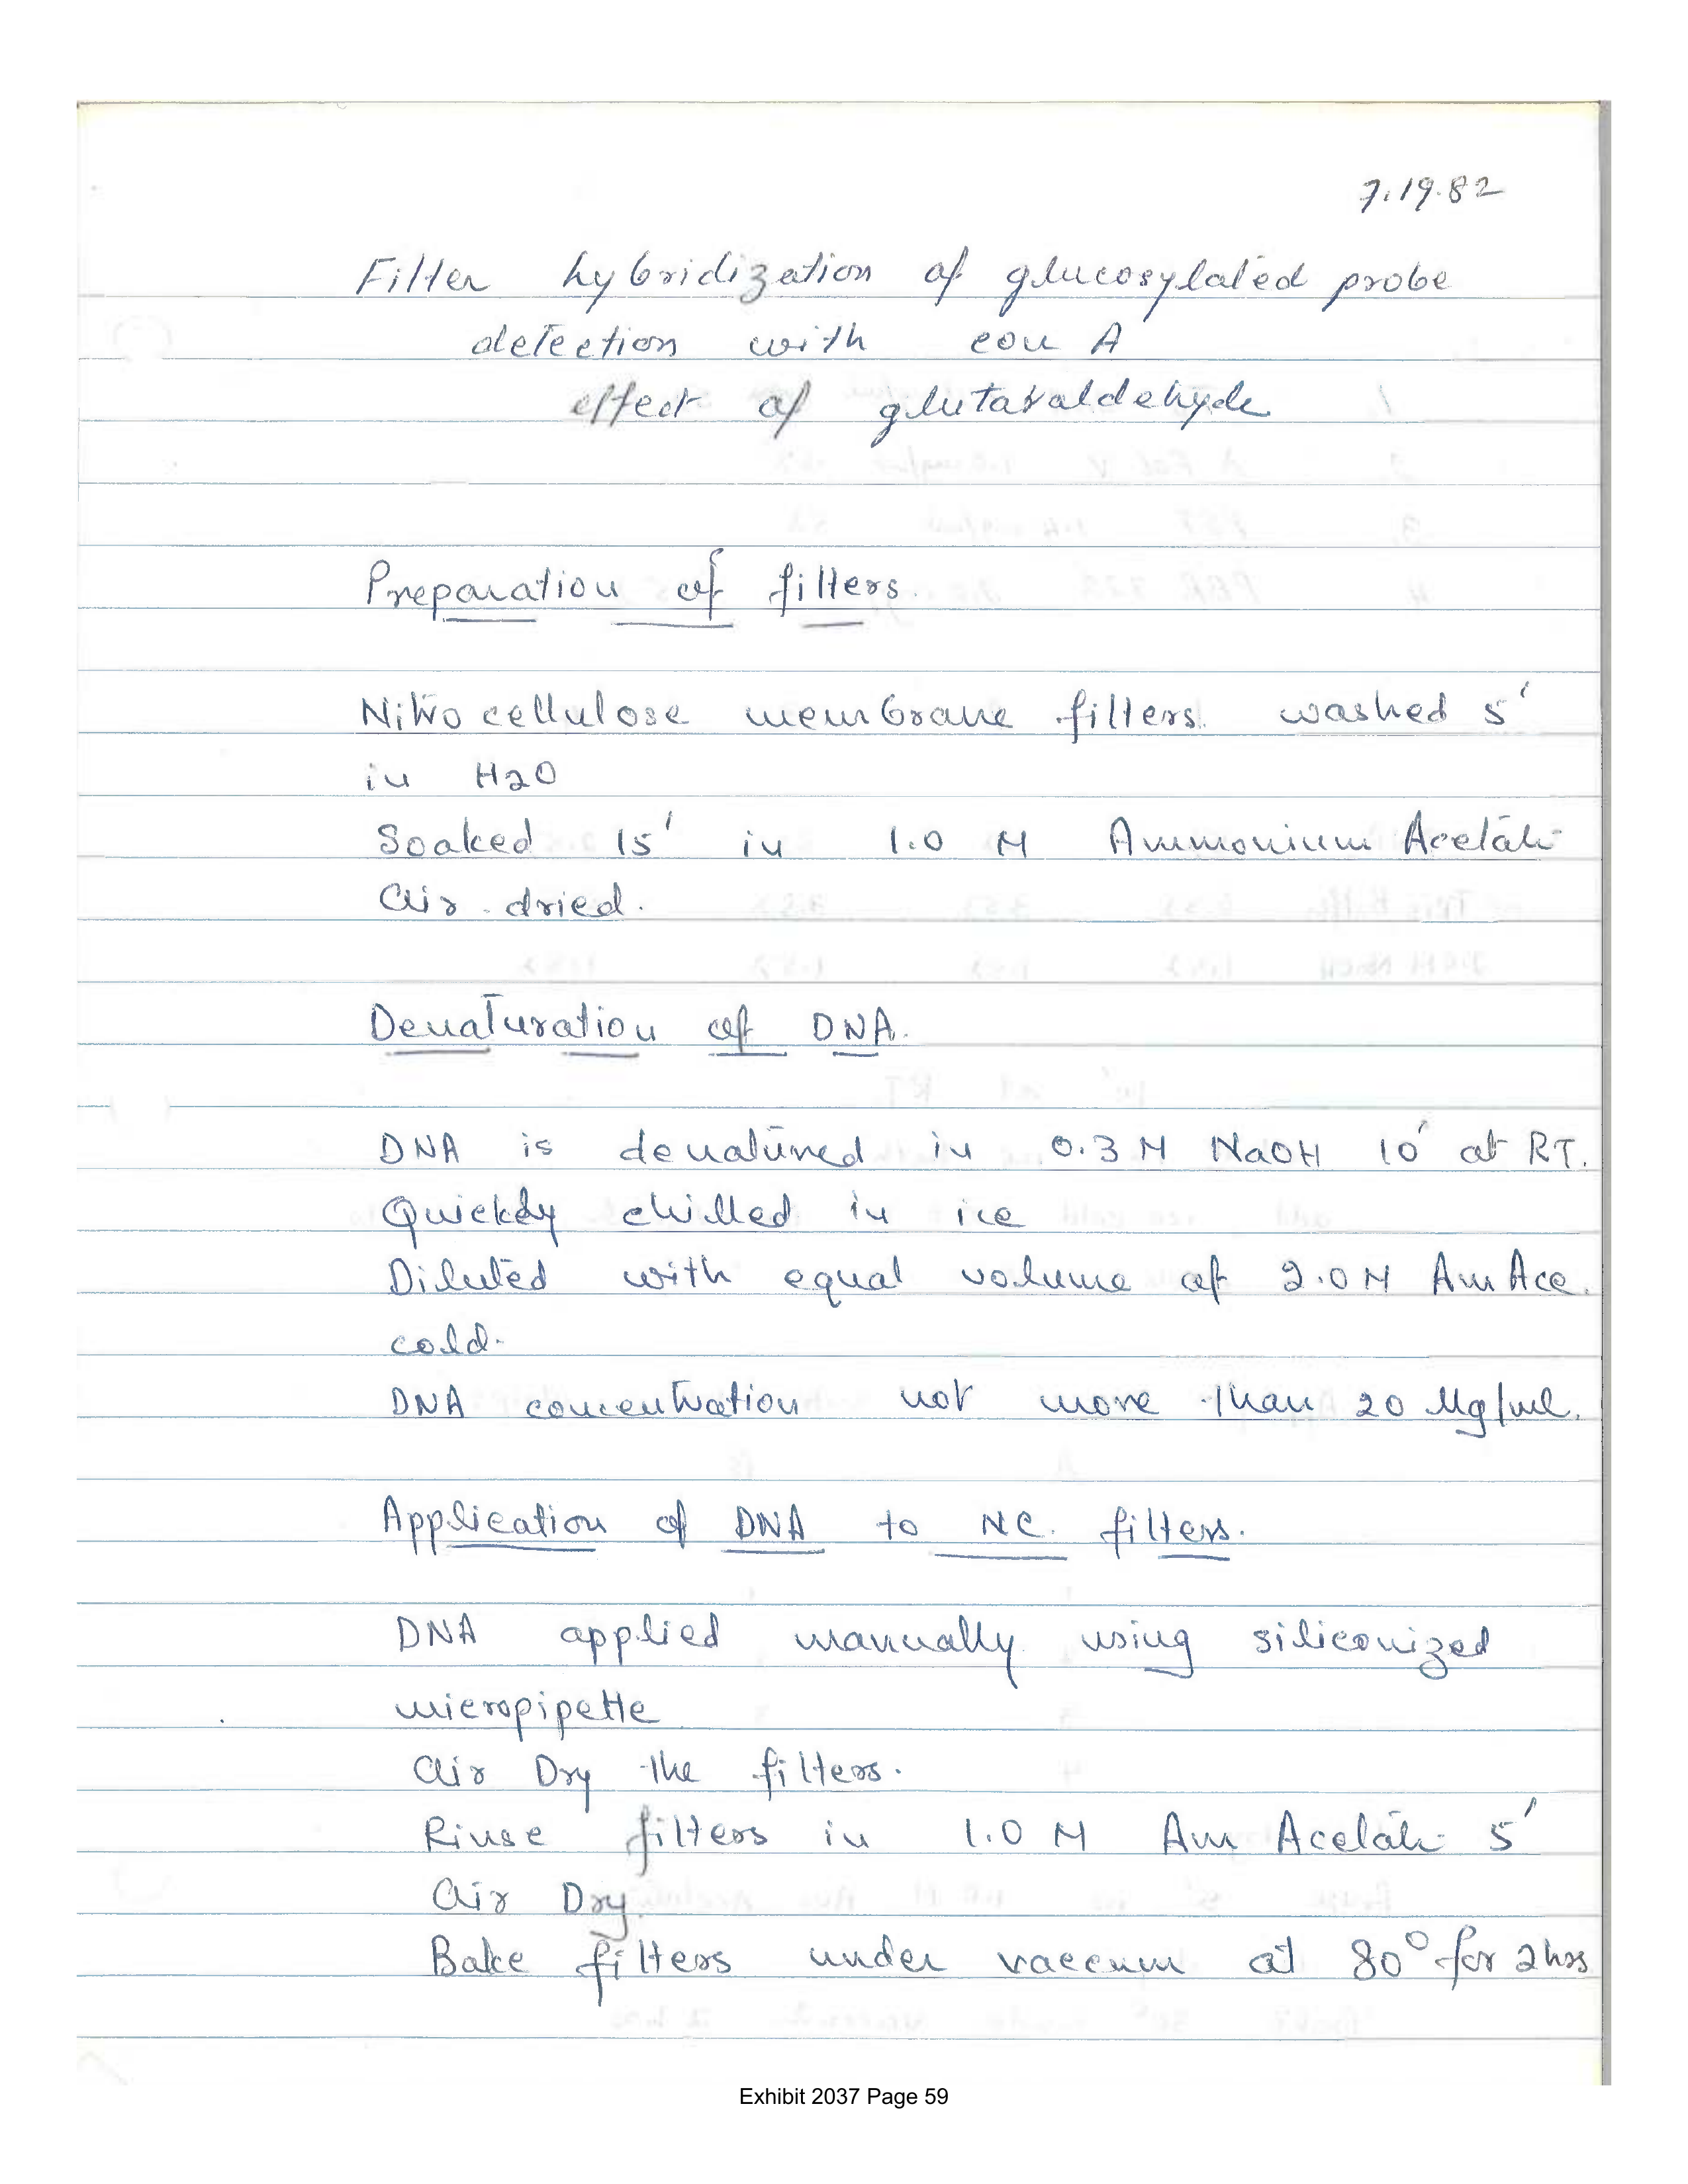 7.19.82
Filter hybridization of glucosylated probe
detection with con A
effect of glutaraldehyde
Preparation of filters.
Nitrocellulose membrane filters. washed 5'
in H2O
Soaked 15' in 1.0 M Ammonium Acetate
Air dried.
Denaturation of DNA.
DNA is denatured in 0.3 M NaOH 10' at RT.
Quickly chilled in ice
Diluted with equal volume of 2.0 M Am Ace.
cold.
DNA concentration not more than 20 µg/ml.
Application of DNA to NC. filters.
DNA applied manually using siliconized
micropipette
Air Dry the filters.
Rinse filters in 1.0 M Am Acetate 5'
Air Dry.
Bake filters under vaccum at 80° for 2 hrs
Exhibit 2037 Page 59